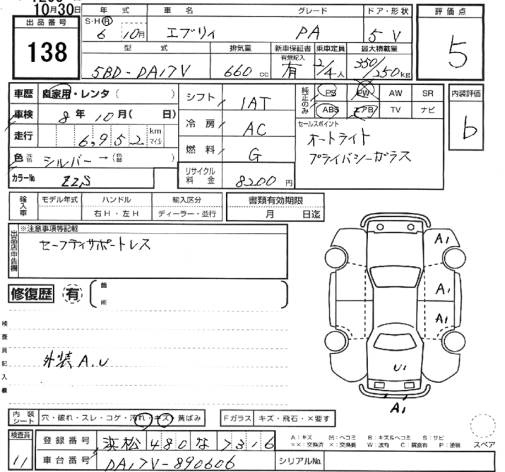 10月30日
年式 車名 グレード ドア・形状 評価点
出品番号
S・H・R 6年10月 エブリィ PA 5V 5
138
型式 排気量 新車保証書 乗車定員 最大積載量
有無記入
5BD-DA17V 660cc 有 2/4人 350/250kg
車歴 自家用・レンタ シフト 1AT 純正のみ PS PW AW SR 内装評価
車検 8年10月(日) ABS エアB TV ナビ b
冷房 AC セールスポイント
走行 6,952 km マイル オートライト
燃料 G プライバシーガラス
色 シルバー→( )
リサイクル料金 8200円
カラーNo. ZZS
輸入車 モデル年式 ハンドル 輸入区分 書類有効期限
右H・左H ディーラー・並行 月 日迄
出品店申告欄 ※注意事項等記載
セーフティサポートレス
A1
A1
修復歴 有
A1
A1
U1
検査員記入欄
外装 A.U
A1
内装シート 穴・破れ・スレ・コゲ・汚れ・キズ・黄ばみ Fガラス キズ・飛石・×要す
検査員 登録番号 浜松480な7316
A:キズ M:ヘコミ B:キズ&ヘコミ S:サビ
スペア
11 車台番号 DA17V-890606 シリアルNo.